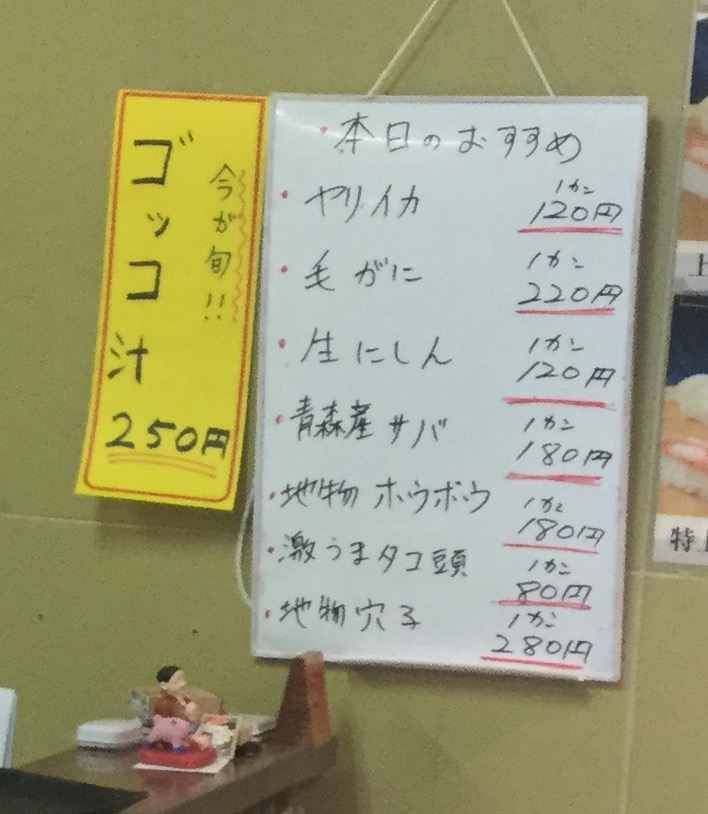 今が旬!!
ゴッコ汁
250円
・本日のおすすめ
・ヤリイカ 1カン 120円
・毛がに 1カン 220円
・生にしん 1カン 120円
・青森産サバ 1カン 180円
・地物ホウボウ 1カン 180円
・激うまタコ頭 1カン 80円
・地物穴子 1カン 280円
上
特